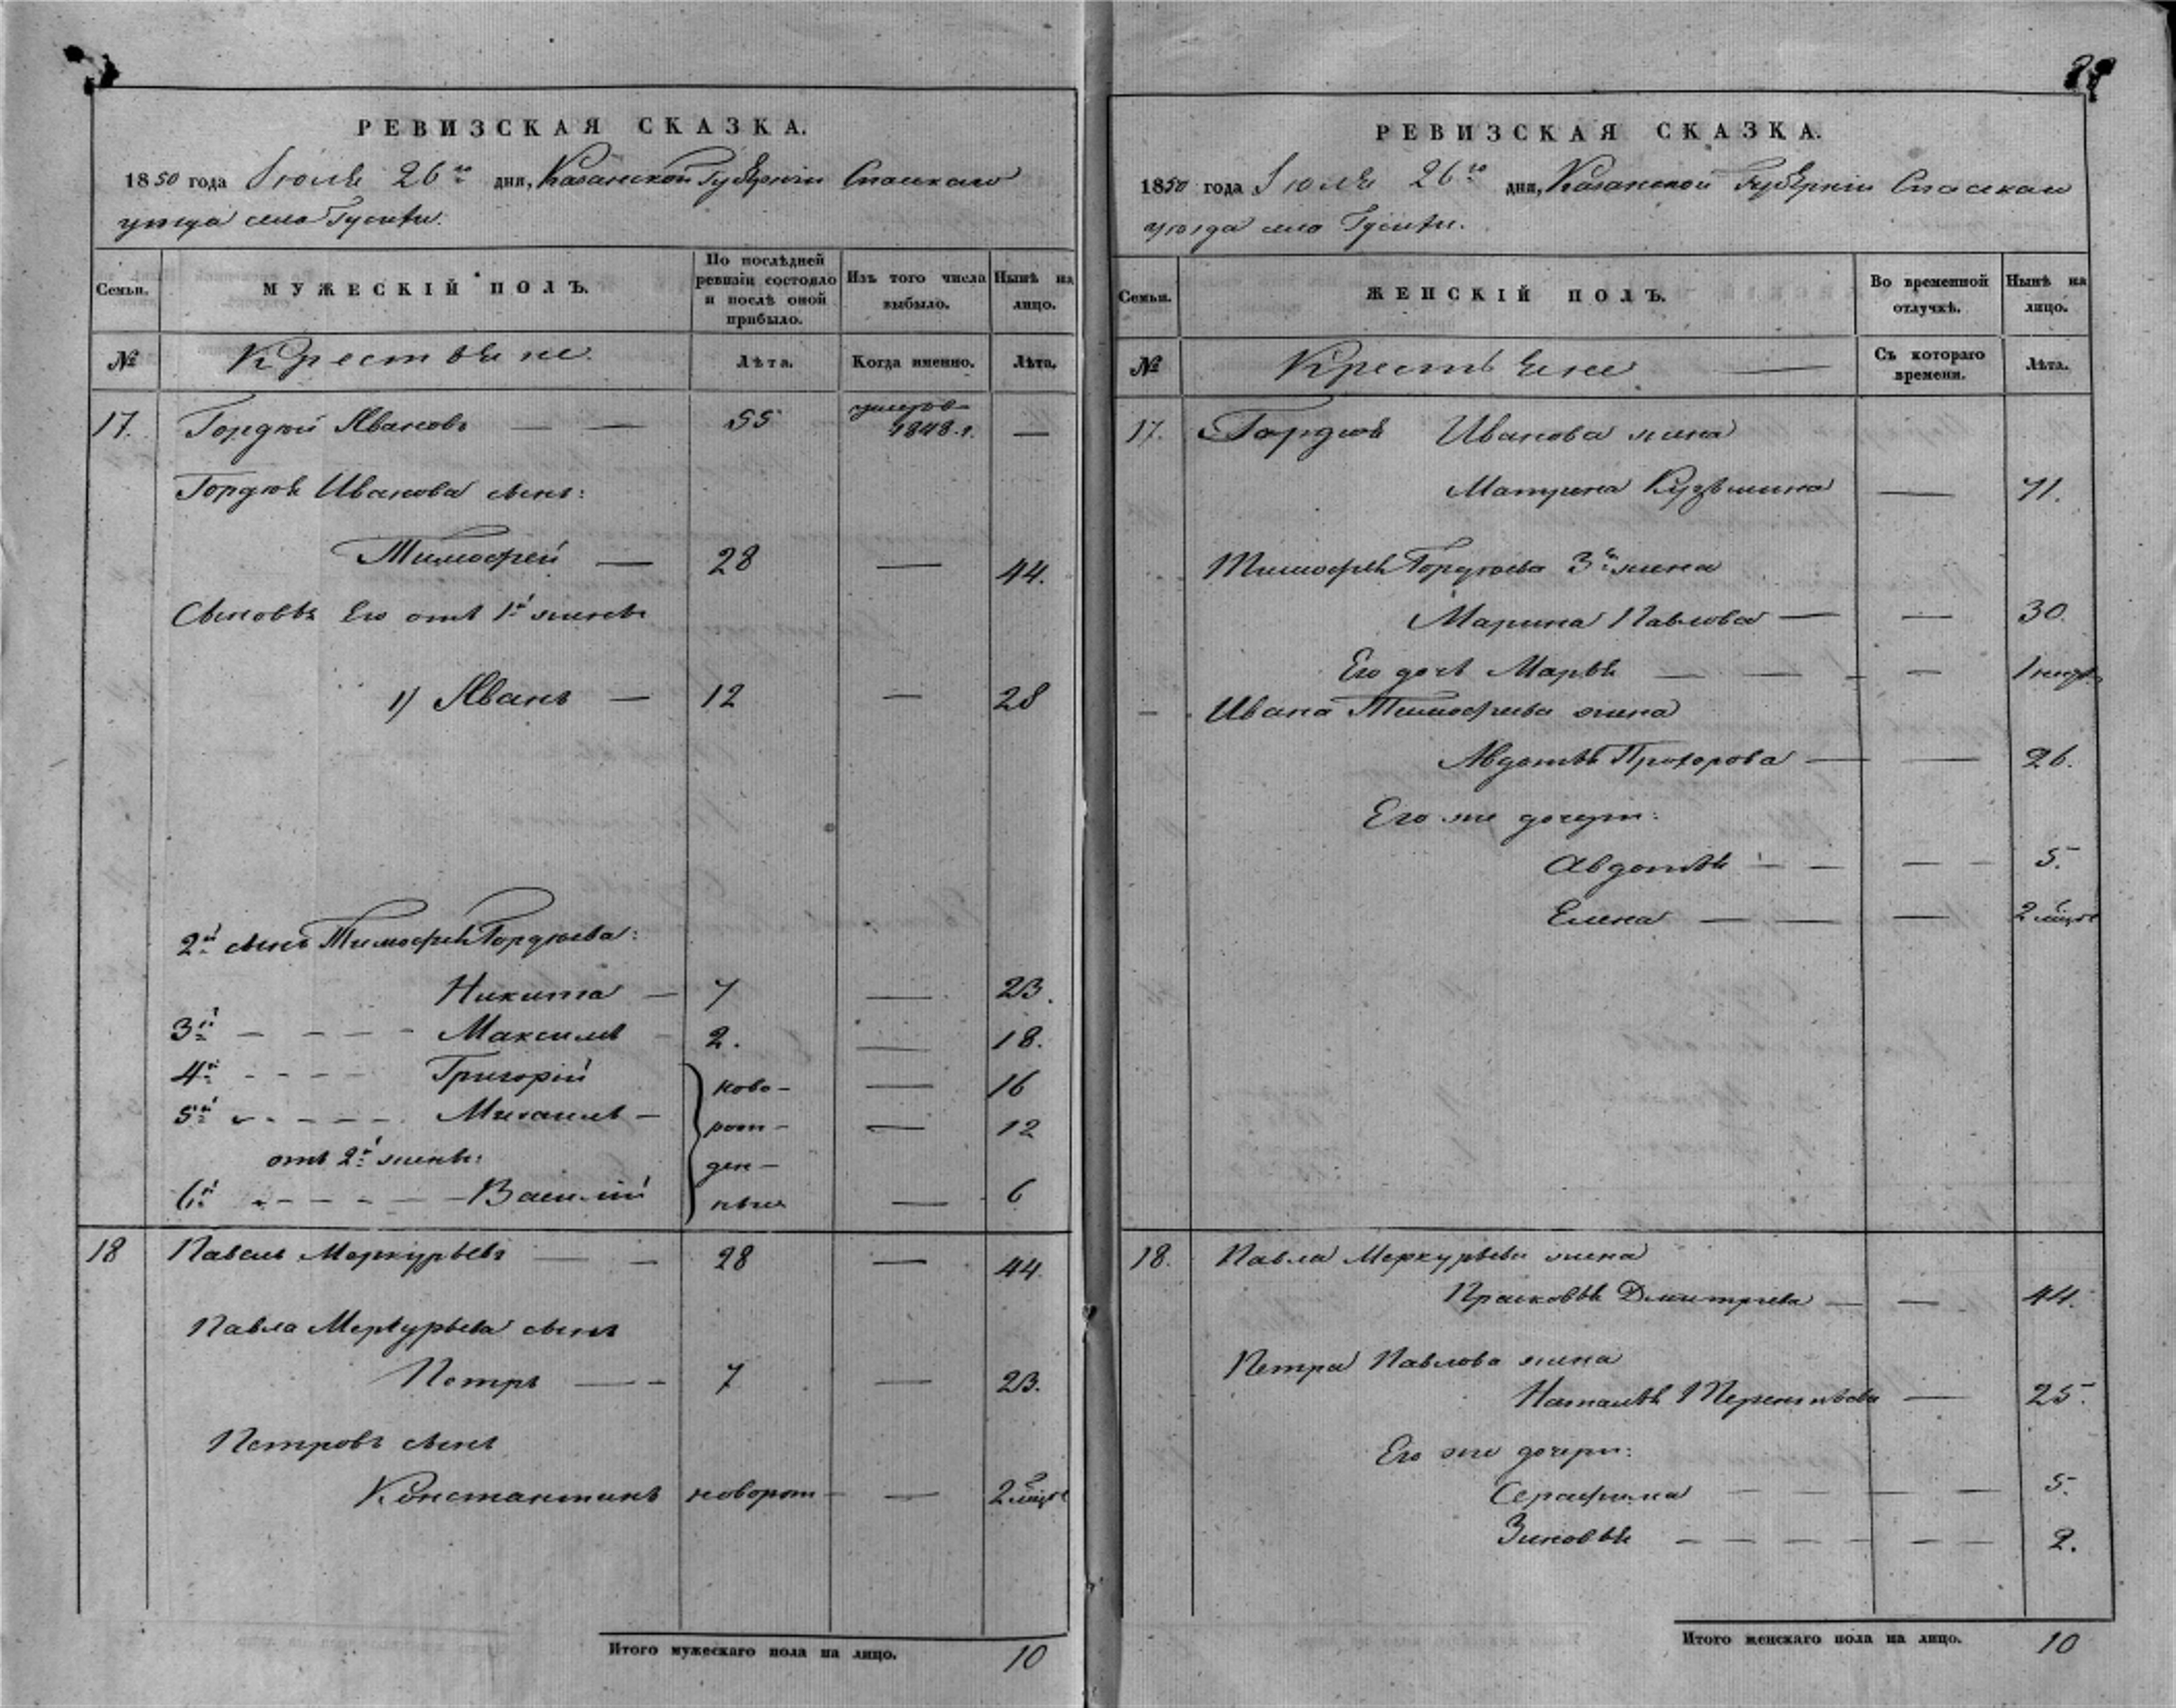 РЕВИЗСКАЯ СКАЗКА.
1850 года Іюля 26го дня, Казанской Губерніи Спаскаго
уезда село
Семьи.
МУЖЕСКІЙ ПОЛЪ.
По послѣдней ревизіи состояло и послѣ оной прибыло.
Изъ того числа выбыло.
Нынѣ на лицо.
№
Крестьяне
Лѣта.
Когда именно.
Лѣта.
17. Гордѣй Ивановъ — — 55 1848.г. —
Гордѣя Иванова сынъ:
Тимофей — 28 — 44.
Сыновья Его отъ 1й жены
1) Иванъ — 12 — 28
2й сынъ Тимофея Гордѣева:
Никита — 7 — 23.
3й — — — — Максимъ 2. — 18.
4й - - - - Григорій ново- — 16
5й - - - - Михаилъ — рож- — 12
отъ 2й жены: ден-
6й - - - - - Василій ные — 6
18 Павелъ Меркурьевъ — — 28 — 44.
Павла Меркурьева сынъ
Петръ — - 7 — 23.
Петровъ сынъ
Константинъ новорож — — 2 мѣсяц
Итого мужескаго пола на лицо. 10
РЕВИЗСКАЯ СКАЗКА.
1850 года Іюля 26го дня, Казанской Губерніи Спаскаго
уезда село
Семьи.
ЖЕНСКІЙ ПОЛЪ.
Во временной отлучкѣ.
Нынѣ на лицо.
№
Крестьяне —
Съ котораго времени.
Лѣта.
17. Гордѣя Иванова жена
Матрена Кузьмина — 71.
Тимофея Гордѣева 3я жена
Марина Павлова — — 30.
Его дочь Марья — — — — 1
- Ивана Тимофеева жена
Авдотья Прохорова — — 26.
Его же дочери:
Авдотья — — — - 5.
Елена — — — 2 мѣсяц
18. Павла Меркурьева жена
Прасковья Дмитриева — — 44.
Петра Павлова жена
Наталья Терентьева — 25.
Его же дочери:
Серафима — — — — 5.
Зиновья — — — — — — 2.
Итого женскаго пола на лицо. 10